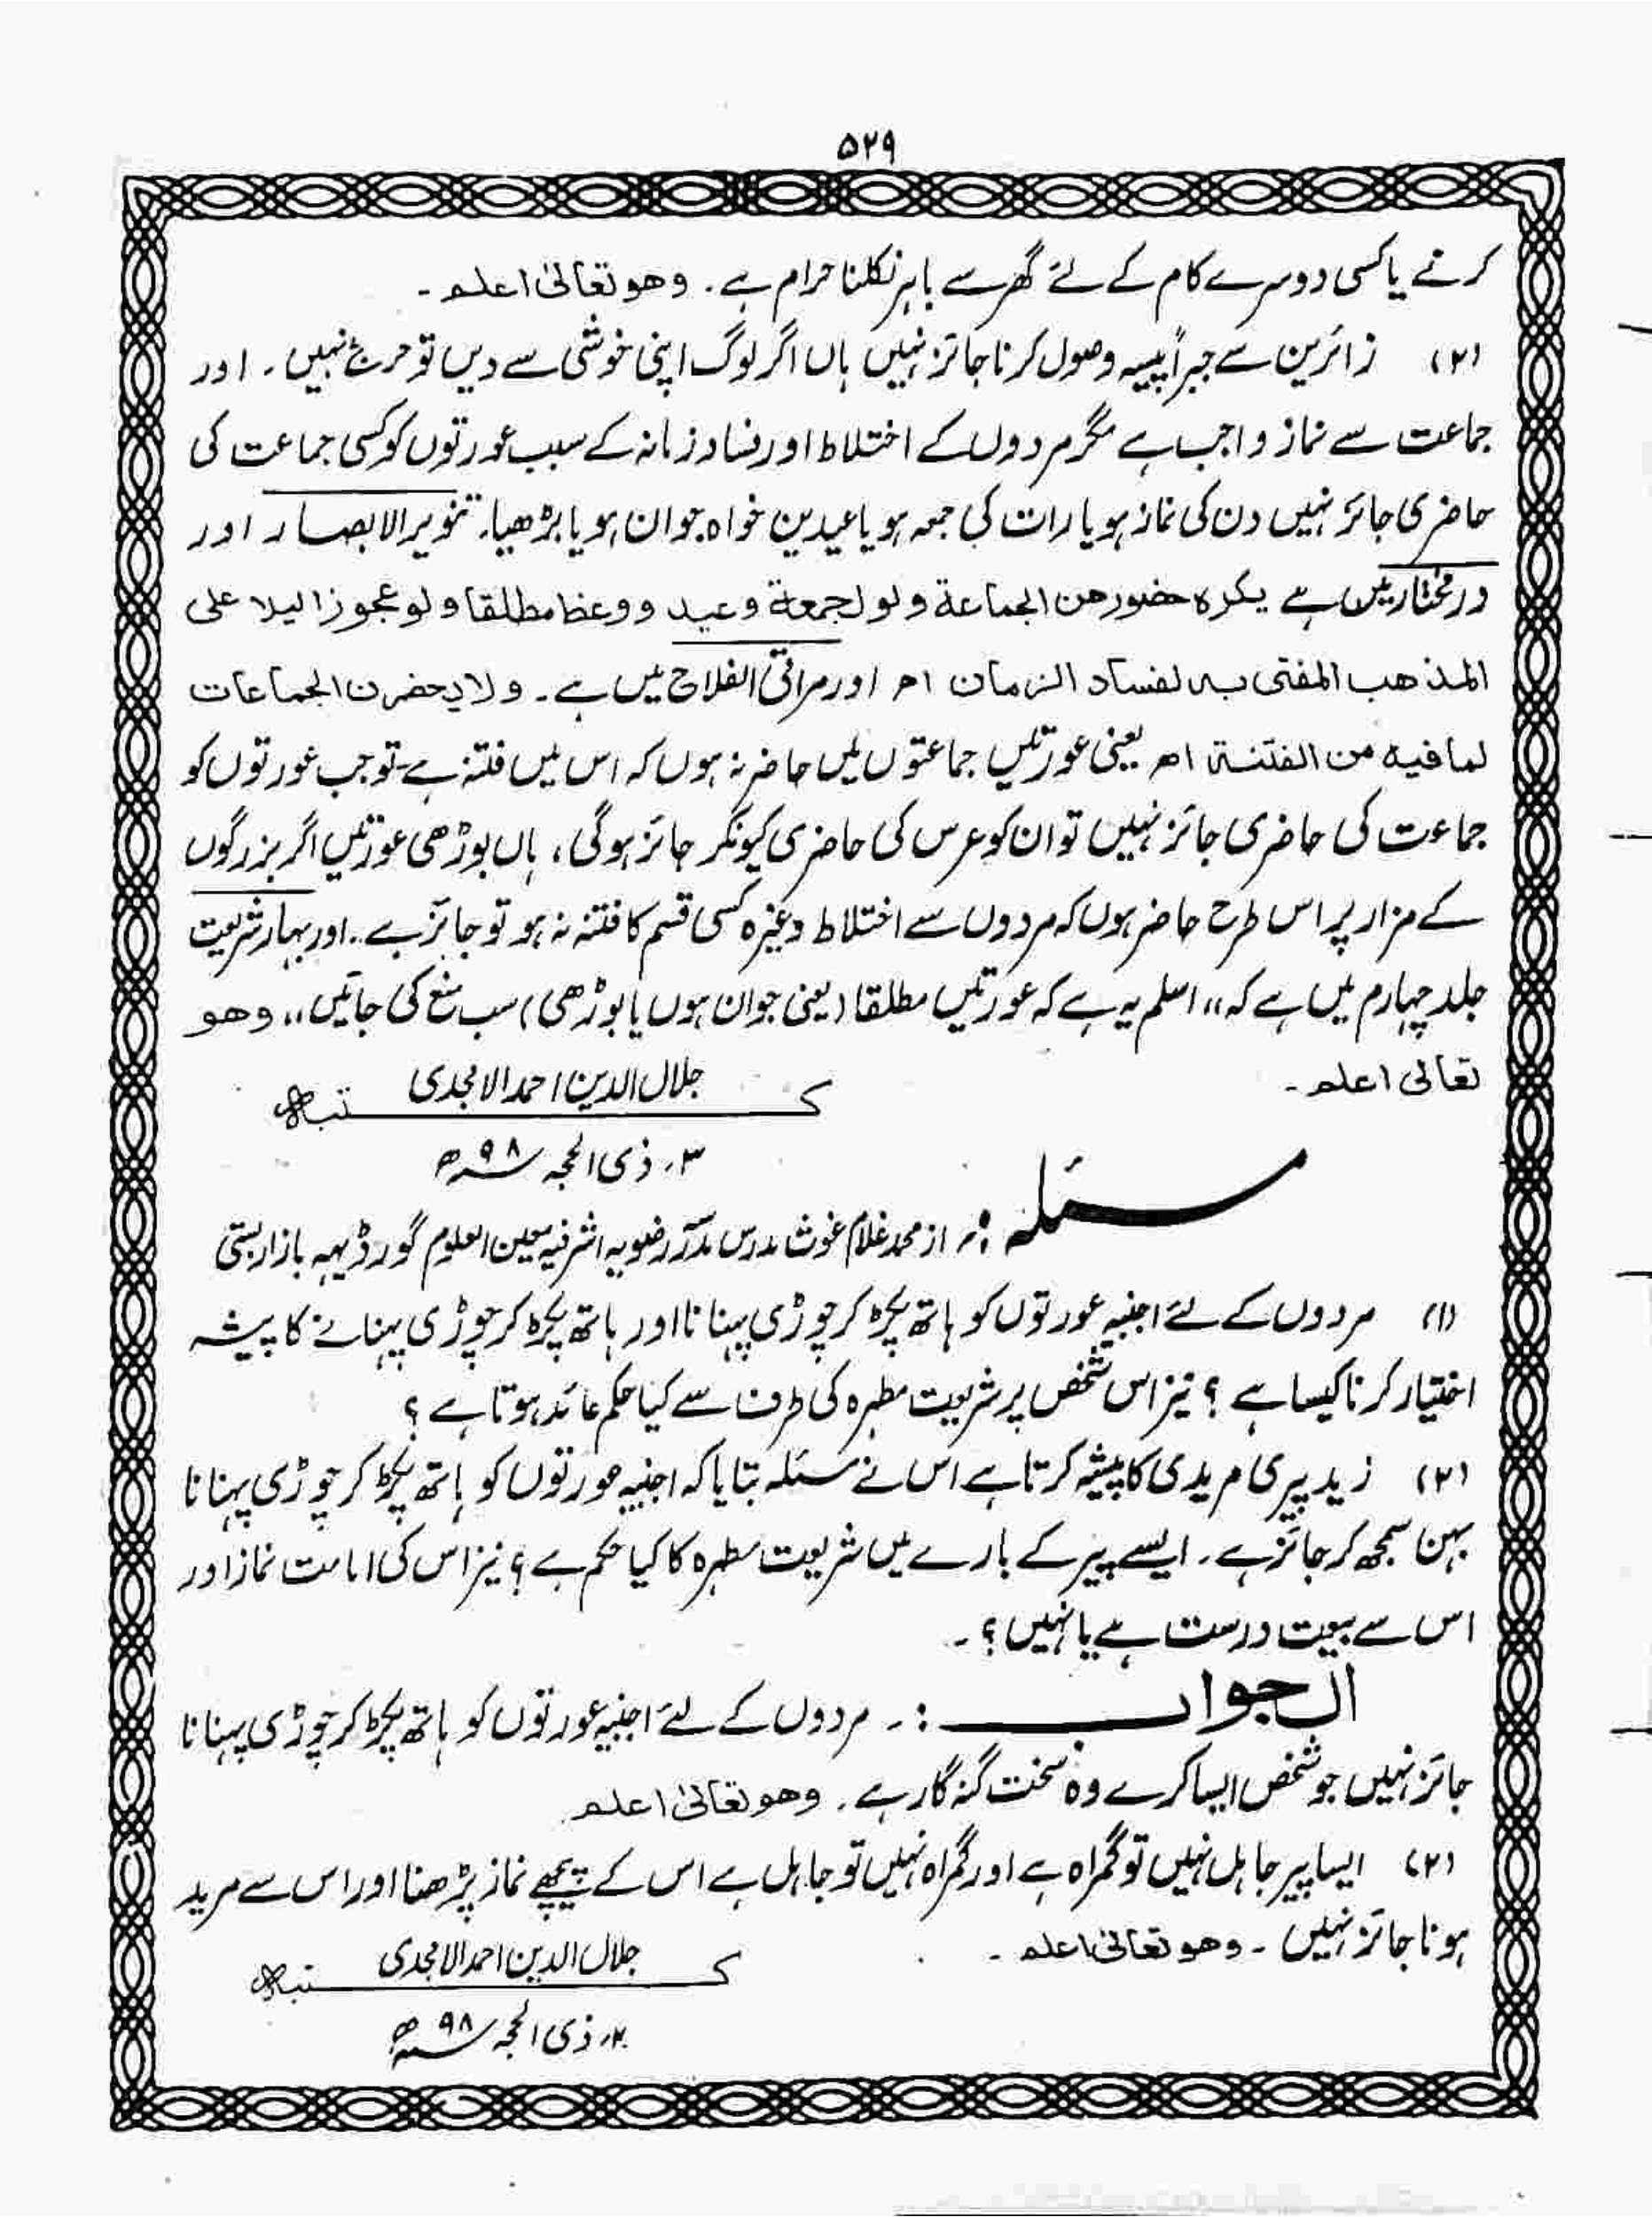 ۵۲۹
کرنے یا کسی دوسرے کام کے لئے گھر سے باہر نکلنا حرام ہے۔ وھو تعالیٰ اعلم۔
(۲) زائرین سے جبراً پیسہ وصول کرنا جائز نہیں ہاں اگر لوگ اپنی خوشی سے دیں تو حرج نہیں۔ اور
جماعت سے نماز واجب ہے مگر مردوں کے اختلاط اور فساد زمانہ کے سبب عورتوں کو کسی جماعت کی
حاضری جائز نہیں دن کی نماز ہو یا رات کی جمعہ ہو یا عیدین خواہ جوان ہو یا بڑھیا۔ تنویر الابصار اور
درمختار میں ہے یکرہ حضورھن الجماعة ولو لجمعة وعید ووعظ مطلقا ولو عجوزا لیلا علی
المذھب المفتی بہ لفساد الزمان اھ اور مراقی الفلاح میں ہے۔ ولا یحضرن الجماعات
لما فیہ من الفتنة اھ یعنی عورتیں جماعتوں میں حاضر نہ ہوں کہ اس میں فتنہ ہے۔ تو جب عورتوں کو
جماعت کی حاضری جائز نہیں تو ان کو عرس کی حاضری کیونکر جائز ہوگی، ہاں بوڑھی عورتیں اگر بزرگوں
کے مزار پر اس طرح حاضر ہوں کہ مردوں سے اختلاط وغیرہ کسی قسم کا فتنہ نہ ہو تو جائز ہے۔ اور بہار شریعت
جلد چہارم میں ہے کہ ،، اسلم یہ ہے کہ عورتیں مطلقا (یعنی جوان ہوں یا بوڑھی) سب منع کی جائیں ،، وھو
تعالیٰ اعلم۔
جلال الدین احمد الامجدی
کتبہ
۳؍ ذی الحجہ ۹۸ھ
مسئلہ :۔ از محمد غلام غوث مدرس مدرسہ رضویہ اشرفیہ معین العلوم گورڈیہہ بازار بستی
(۱) مردوں کے لئے اجنبیہ عورتوں کو ہاتھ پکڑ کر چوڑی پہنانا اور ہاتھ پکڑ کر چوڑی پہنانے کا پیشہ
اختیار کرنا کیسا ہے ؟ نیز اس شخص پر شریعت مطہرہ کی طرف سے کیا حکم عائد ہوتا ہے ؟
(۲) زید پیری مریدی کا پیشہ کرتا ہے اس نے مسئلہ بتایا کہ اجنبیہ عورتوں کو ہاتھ پکڑ کر چوڑی پہنانا
بہن سمجھ کر جائز ہے۔ ایسے پیر کے بارے میں شریعت مطہرہ کا کیا حکم ہے ؟ نیز اس کی امامت نماز اور
اس سے بیعت درست ہے یا نہیں ؟ ۔
الجواب :۔ مردوں کے لئے اجنبیہ عورتوں کو ہاتھ پکڑ کر چوڑی پہنانا
جائز نہیں جو شخص ایسا کرے وہ سخت گنہ گار ہے۔ وھو تعالیٰ اعلم
(۲) ایسا پیر جاہل نہیں تو گمراہ ہے اور گمراہ نہیں تو جاہل ہے اس کے پیچھے نماز پڑھنا اور اس سے مرید
ہونا جائز نہیں ۔ وھو تعالیٰ اعلم ۔
جلال الدین احمد الامجدی
کتبہ
۲؍ ذی الحجہ ۹۸ھ